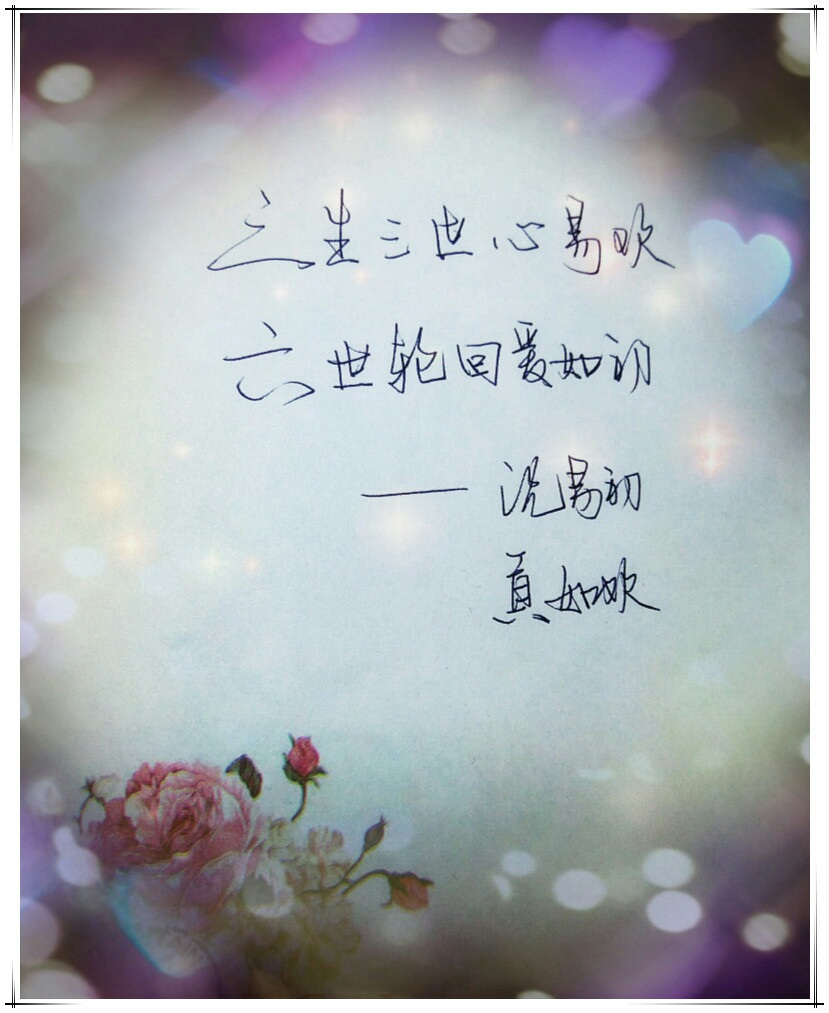 三生三世心易欢
六世轮回爱如初
——沈易初
真如欢